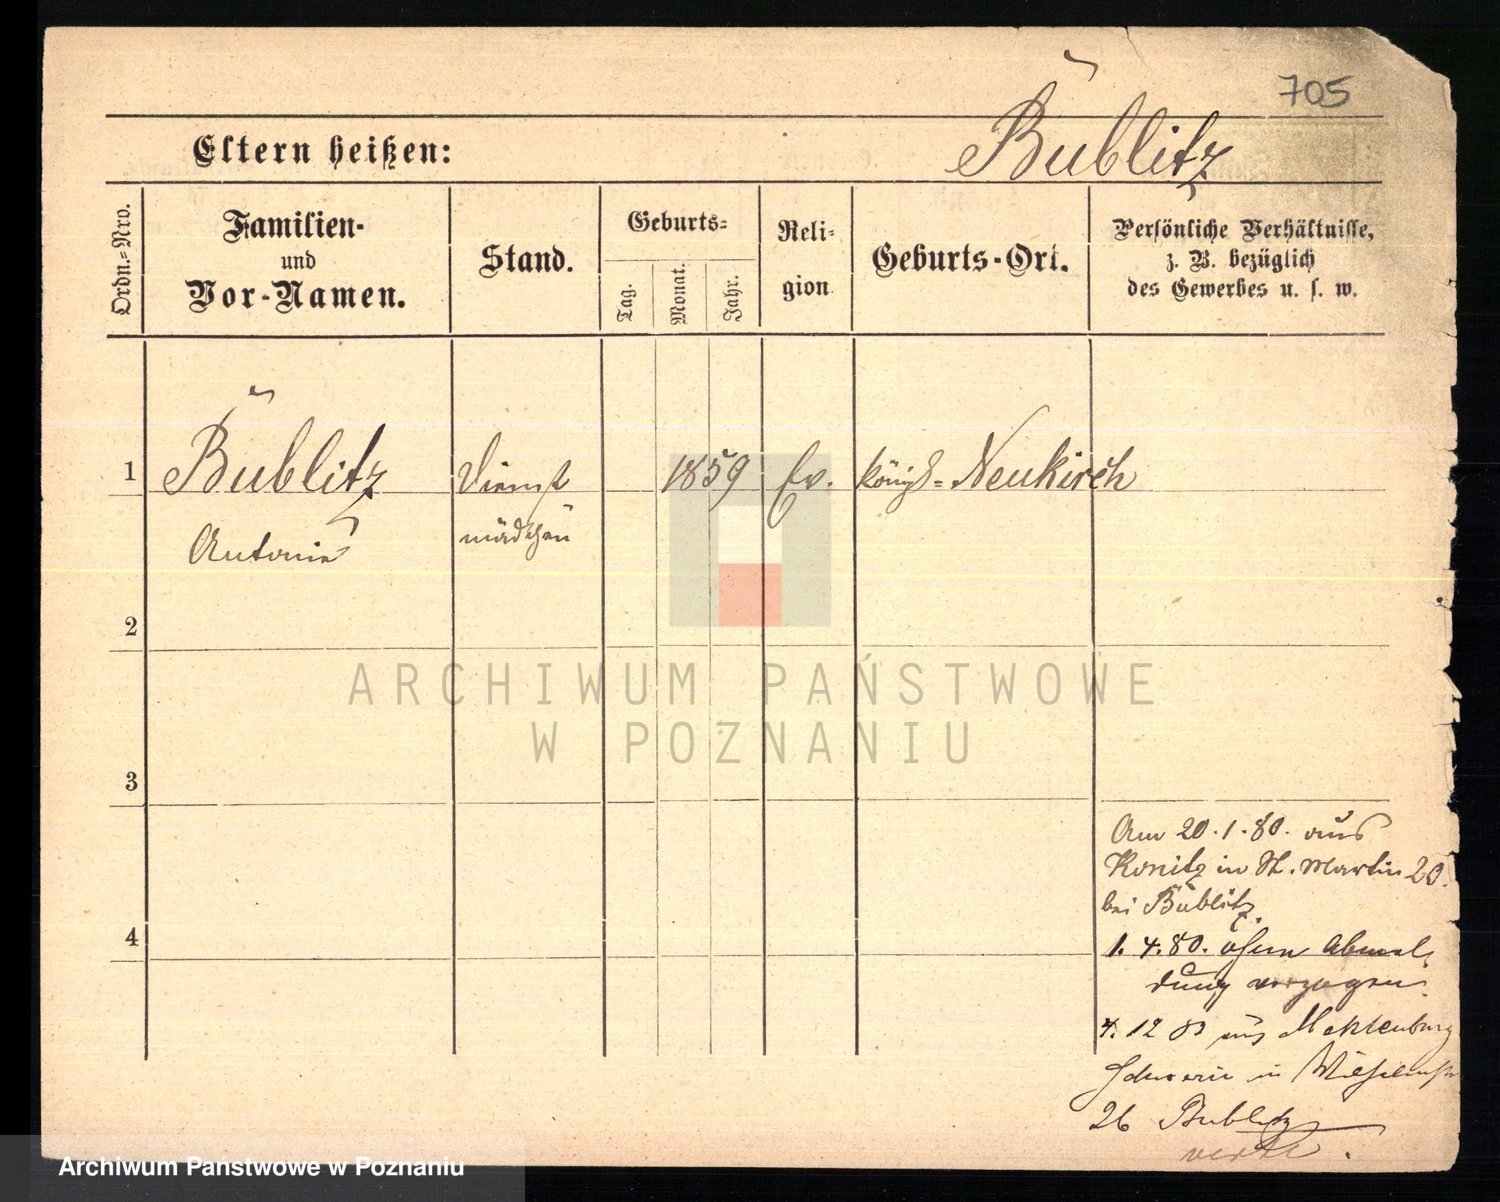 705
Eltern heißen: Bublitz
Ordn.-Nro.
Familien-
und
Vor-Namen.
Stand.
Geburts-
Tag.
Monat.
Jahr.
Reli-
gion
Geburts-Ort.
Persönliche Verhältnisse,
z. B. bezüglich
des Gewerbes u. s. w.
1 Bublitz Dienst 1859 Ev. königl- Neukirch
Antonie mädchen
2
3
4
Am 20.1.80. aus
Konitz in St. Martin 20.
bei Bublitz.
1. 4. 80. ohne Abmel,
dung verzogen.
4. 12 83 aus Meklenburg
Schwerin in Wilhelmstr
26 Bublitz
ARCHIWUM PAŃSTWOWE
W POZNANIU
Archiwum Państwowe w Poznaniu